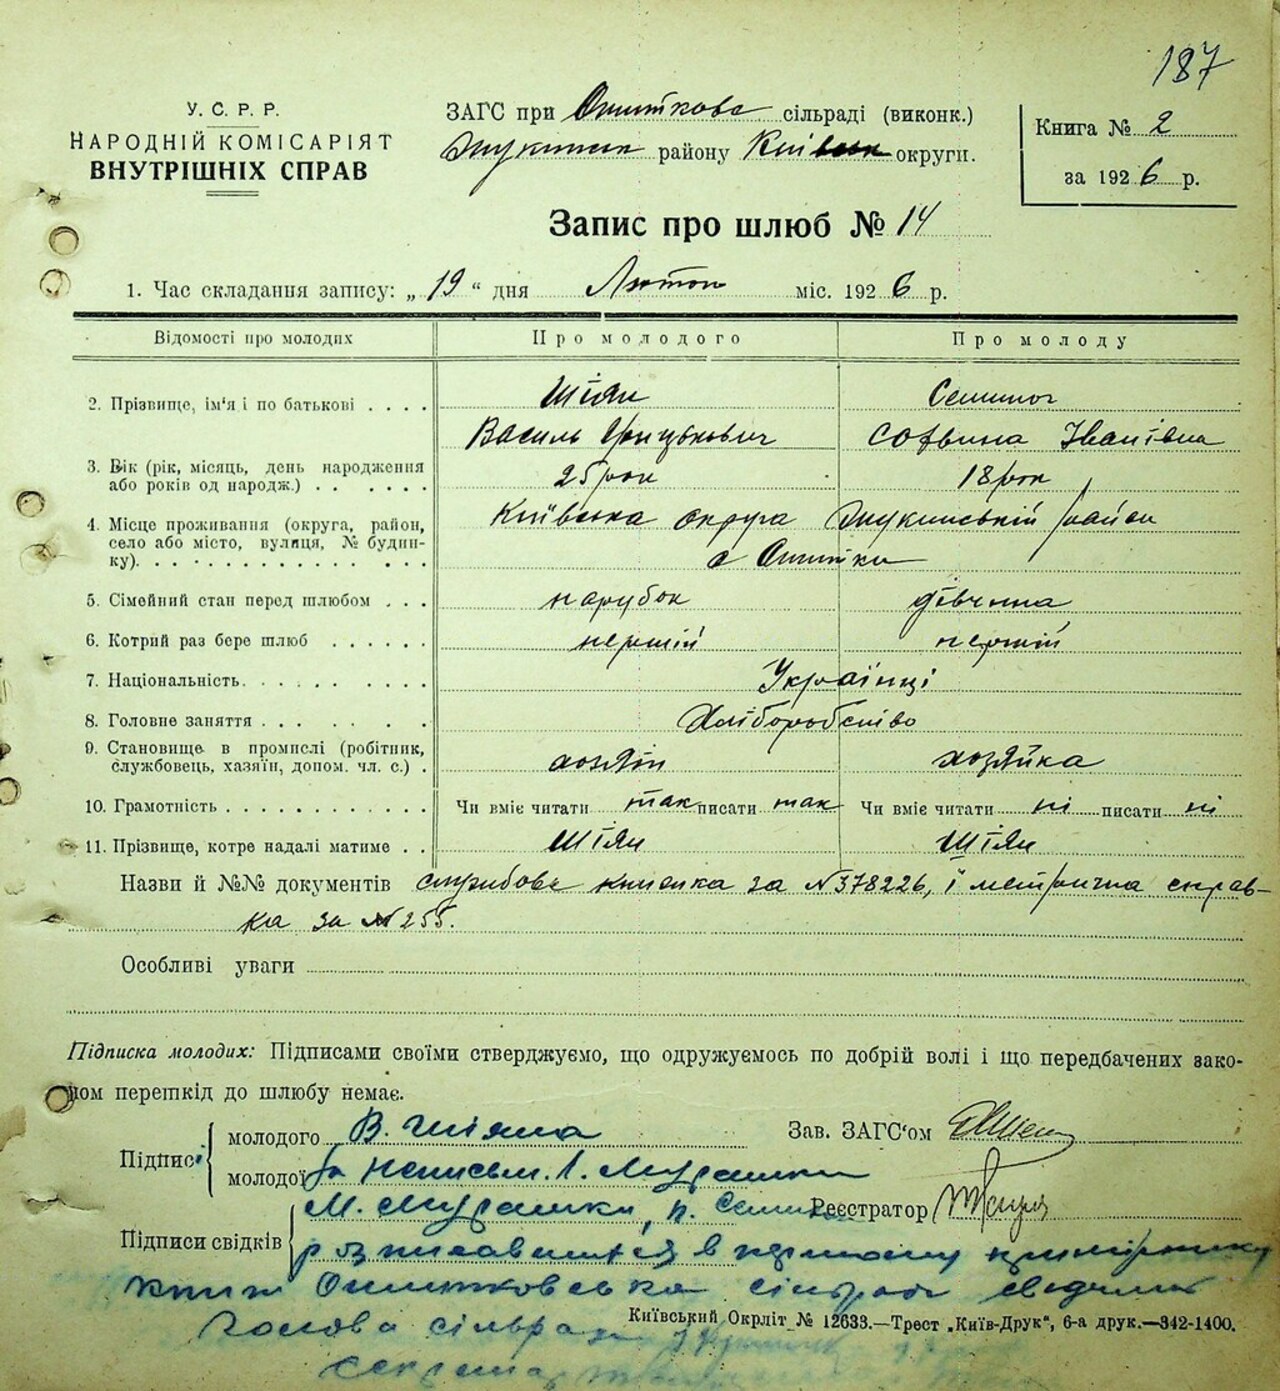 187
У. С. Р. Р.
НАРОДНІЙ КОМІСАРІЯТ
ВНУТРІШНІХ СПРАВ
ЗАГС при Ошиткова сільраді (виконк.)
Жукинськ району Київськ округи.
Книга № 2
за 1926 р.
Запис про шлюб № 14
1. Час складання запису: „19“ дня Лютого міс. 1926 р.
Відомості про молодих Про молодого Про молоду
2. Прізвище, ім'я і по батькові . . . . Шіян Семиног
Василь Грицькович Софвина Іванівна
3. Вік (рік, місяць, день народження
або років од народж.) . . . . . . 25 рок 18 рок
4. Місце проживання (округа, район,
село або місто, вулиця, № будин-
ку). . . . . . . . . . . . . . .
Київська округа Жукинській район
с Ошитки
5. Сімейний стан перед шлюбом . . . парубок дівчина
6. Котрий раз бере шлюб . . . . . . перший перший
7. Національність. . . . . . . . . . Українці
8. Головне заняття . . . . . . . . Хліборобство
9. Становище в промислі (робітник,
службовець, хазяїн, допом. чл. с.) . хозяін хозяйка
10. Грамотність . . . . . . . . . . . Чи вміє читати так писати так Чи вміє читати ні писати ні
11. Прізвище, котре надалі матиме . . Шіян Шіян
Назви й №№ документів службова книжка за №378226, і метрична справ-
ка за №255.
Особливі уваги
Підписка молодих: Підписами своїми стверджуємо, що одружуємось по добрій волі і що передбачених зако-
ном перешкід до шлюбу немає.
Підписи
молодого В. Шіян Зав. ЗАГС'ом
молодої за неписьм. Мурашки
Підписи свідків
М. Мурашки, Реєстратор
розписавшися в першому
книги Ошитковська
Київський Окрліт № 12633.—Трест „Київ-Друк“, 6-а друк.—342-1400.
Голова сільради